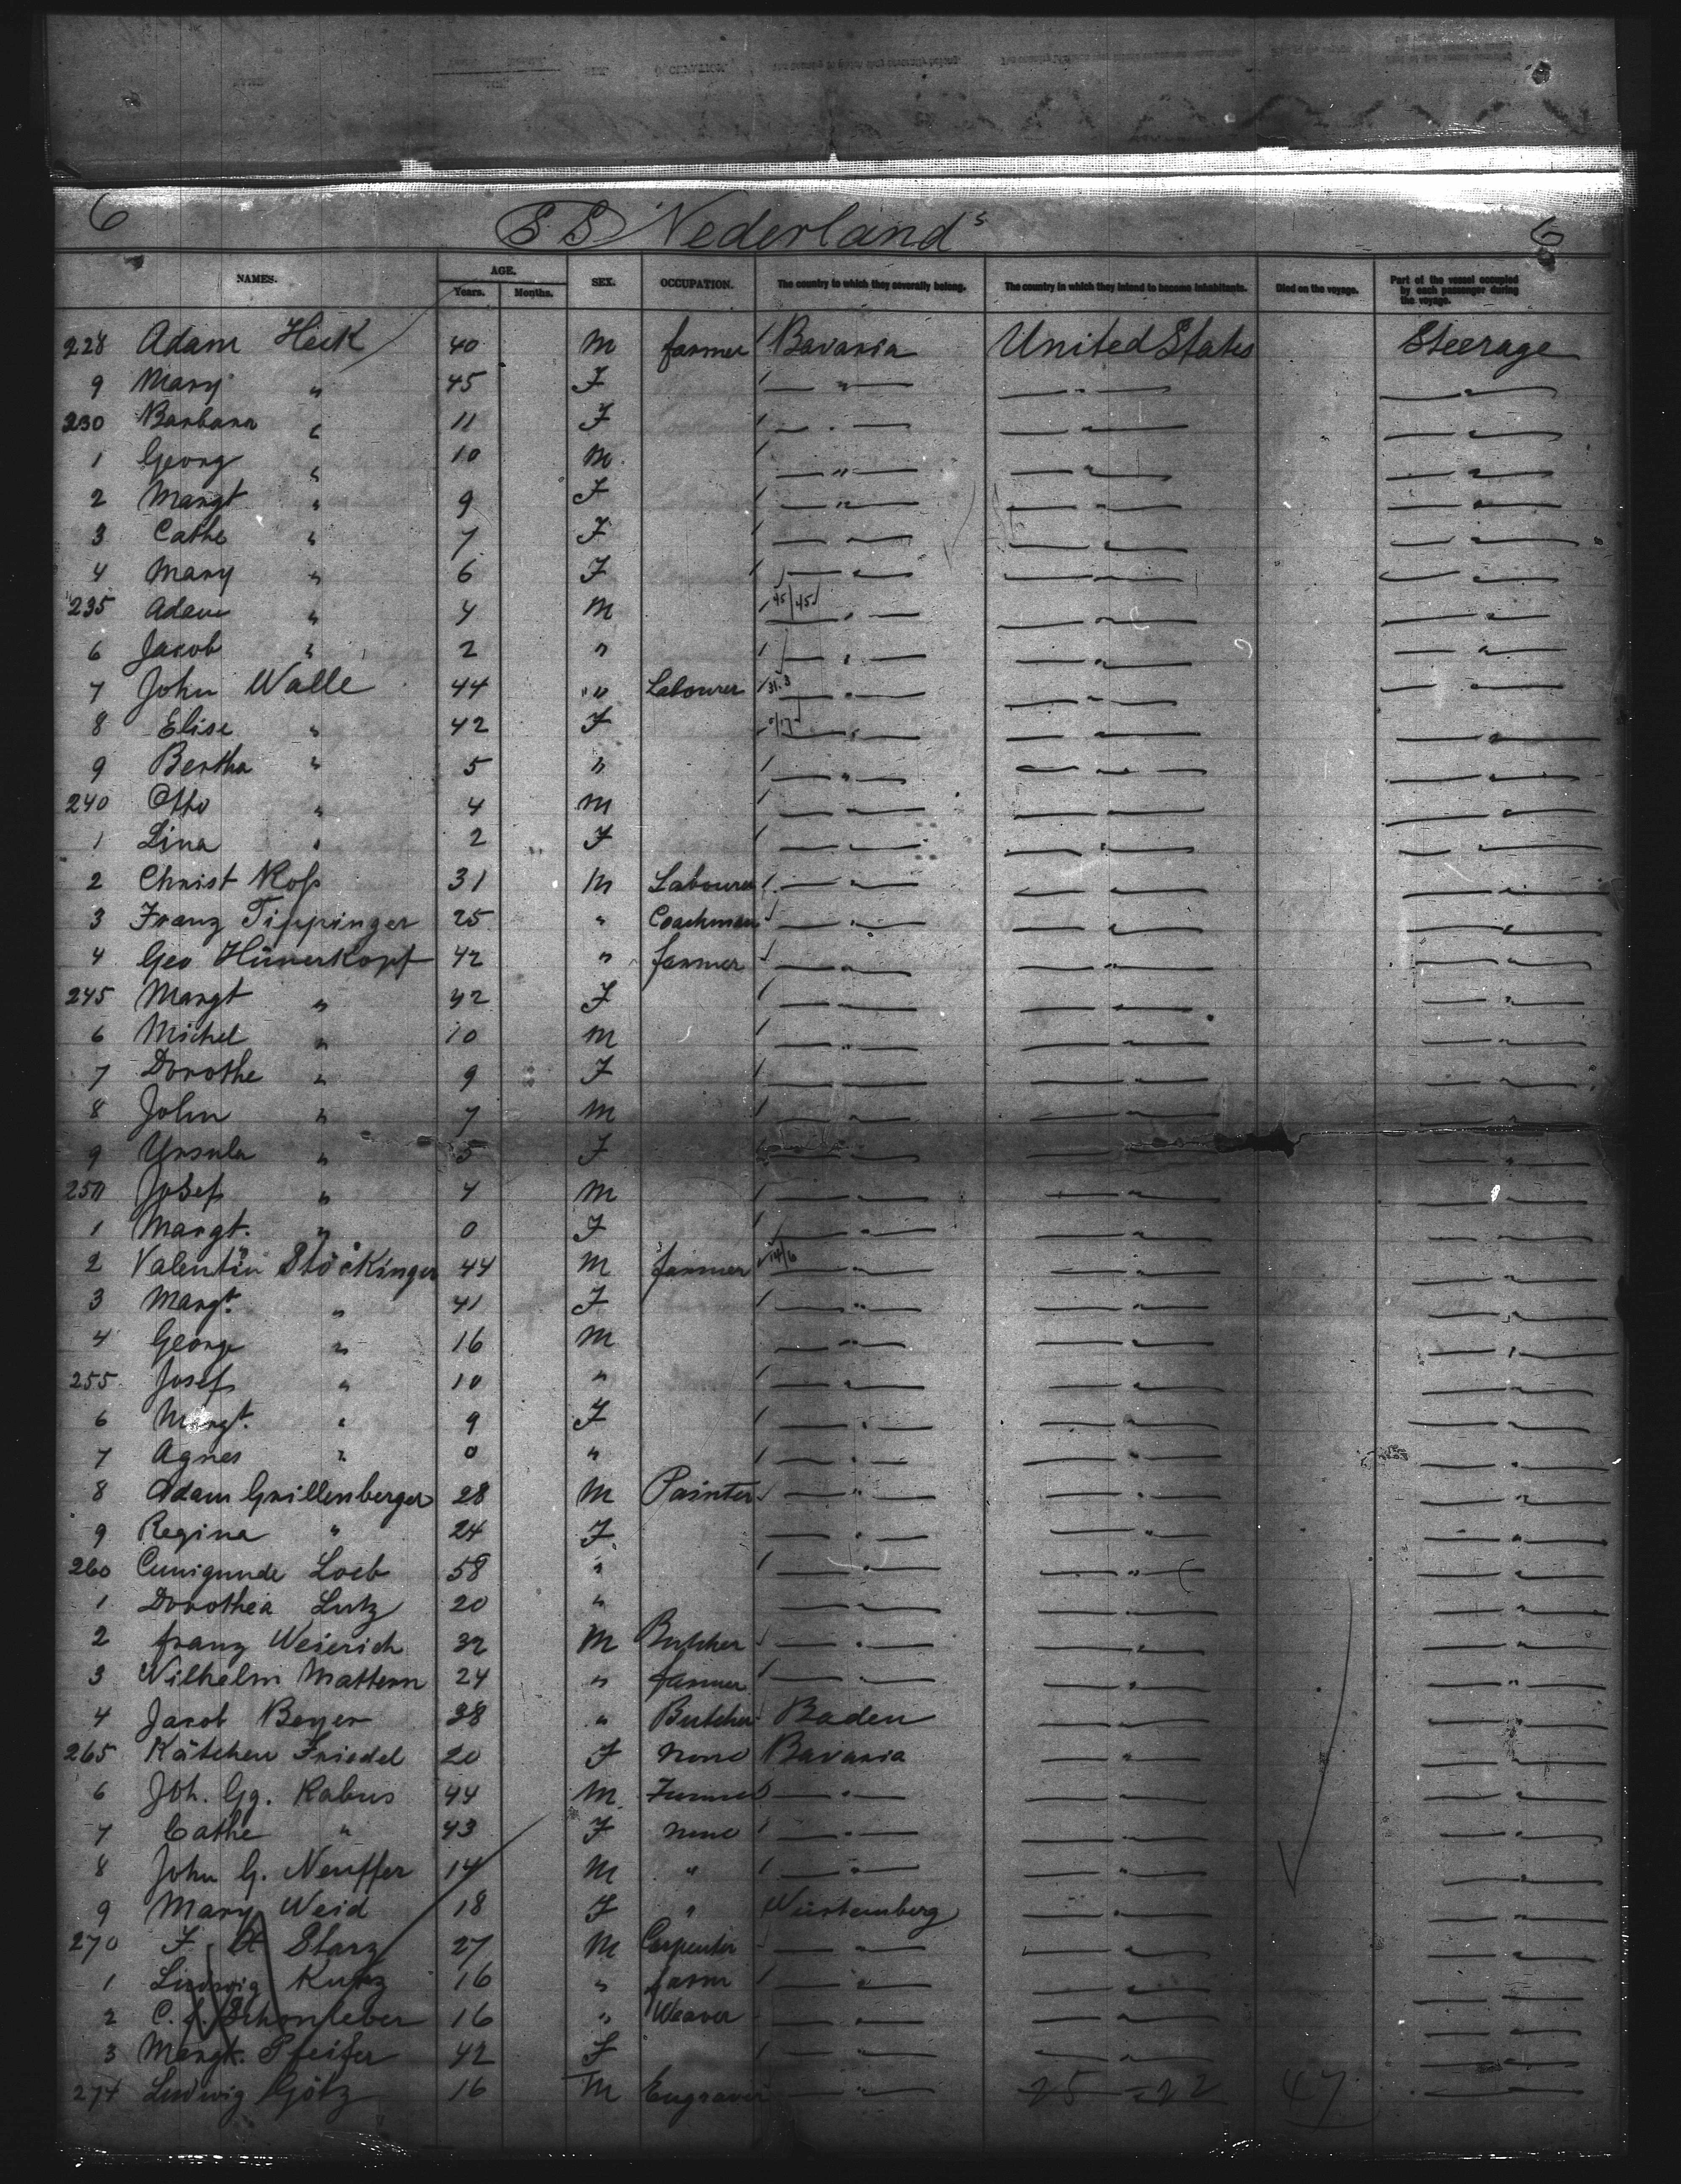 6 SS Nederland 6
NAMES. AGE. Years. Months. SEX. OCCUPATION. The country to which they severally belong. The country in which they intend to become inhabitants. Died on the voyage. Part of the vessel occupied by each passenger during the voyage.
228 Adam Heck 40 M farmer Bavaria United States Steerage
9 Mary " 45 F — " — — " — — " —
230 Barbara " 11 F — " — — " — — " —
1 Georg " 10 M — " — — " — — " —
2 Margt " 9 F — " — — " — — " —
3 Cathe " 7 F — " — — " — — " —
4 Mary " 6 F — " — — " — — " —
235 Adam " 4 M — " — — " — — " —
6 Jacob " 2 " — " — — " — — " —
7 John Walle 44 " Labourer — " — — " — — " —
8 Elise " 42 F — " — — " — — " —
9 Bertha " 5 " — " — — " — — " —
240 Otto " 4 M — " — — " — — " —
1 Lina " 2 F — " — — " — — " —
2 Christ Roß 31 M Labourer — " — — " — — " —
3 Franz Tippinger 25 " Coachman — " — — " — — " —
4 Geo Hünerkopf 42 " farmer — " — — " — — " —
245 Margt " 42 F — " — — " — — " —
6 Michel " 10 M — " — — " — — " —
7 Dorothe " 9 F — " — — " — — " —
8 John " 7 M — " — — " — — " —
9 Ursula " 5 F — " — — " — — " —
250 Josef " 4 M — " — — " — — " —
1 Margt. " 0 F — " — — " — — " —
2 Valentin Stöckinger 44 M farmer — " — — " — — " —
3 Margt. " 41 F — " — — " — — " —
4 George " 16 M — " — — " — — " —
255 Josef " 10 " — " — — " — — " —
6 Margt. " 9 F — " — — " — — " —
7 Agnes " 0 " — " — — " — — " —
8 Adam Grillenberger 28 M Painter — " — — " — — " —
9 Regina " 24 F — " — — " — — " —
260 Cunigunde Loeb 58 " — " — — " — — " —
1 Dorothea Lutz 20 " — " — — " — — " —
2 Franz Weierich 32 M Butcher — " — — " — — " —
3 Wilhelm Mattern 24 " farmer — " — — " — — " —
4 Jacob Beyer 28 " Butcher Baden — " — — " —
265 Kätchen Friedel 20 F none Bavaria — " — — " —
6 Joh. Gg. Rabus 44 M Farmer — " — — " — — " —
7 Cathe " 43 F none — " — — " — — " —
8 John G. Neuffer 14 M " — " — — " — — " —
9 Mary Weid 18 F " Würtemberg — " — — " —
270 F. A Starz 27 M Carpenter — " — — " — — " —
1 Ludwig Kurz 16 " farm — " — — " — — " —
2 C. Schonleber 16 " Weaver — " — — " — — " —
3 Margt. Pfeifer 42 F — " — — " — — " —
274 Ludwig Götz 16 M Engraver — " — 25 22 47 — " —